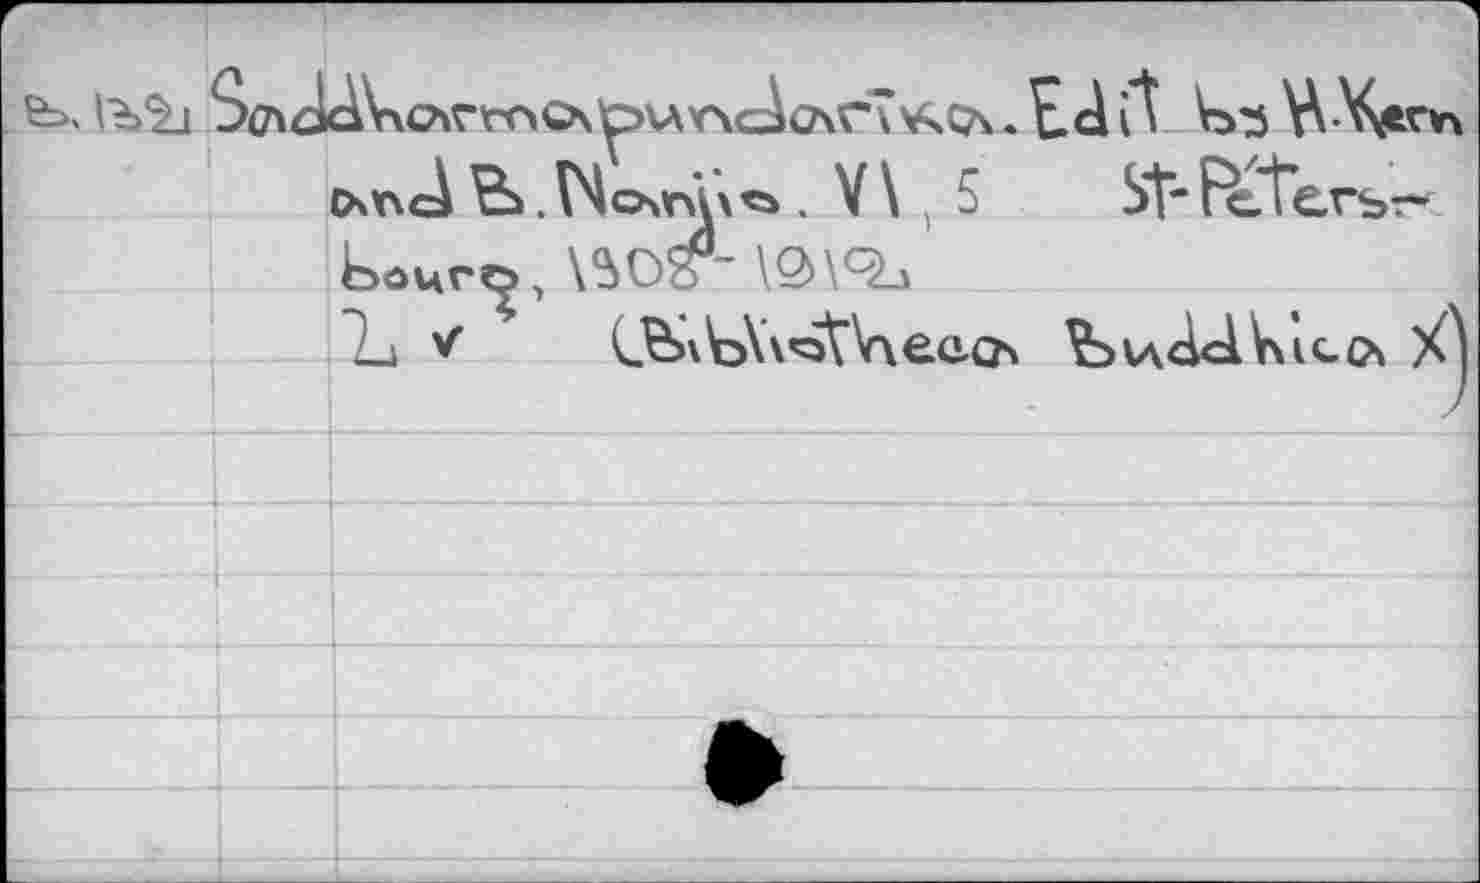 B. 132 Saddharmapuṇḍarīka. Edit by H. Kern
and B. Nanjio. V 1, 5 St-Péters-
bourg, 1908-1912
2 v (Bibliotheca Buddhica X)